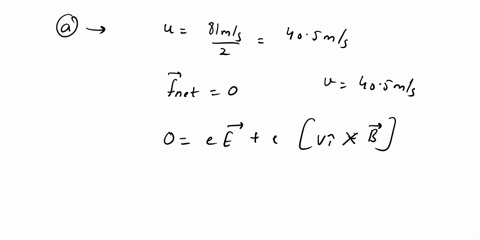 (a) → u = 81m/s / 2 = 40.5m/s
f⃗net = 0 v = 40.5m/s
0 = e E⃗ + e [vî × B⃗]